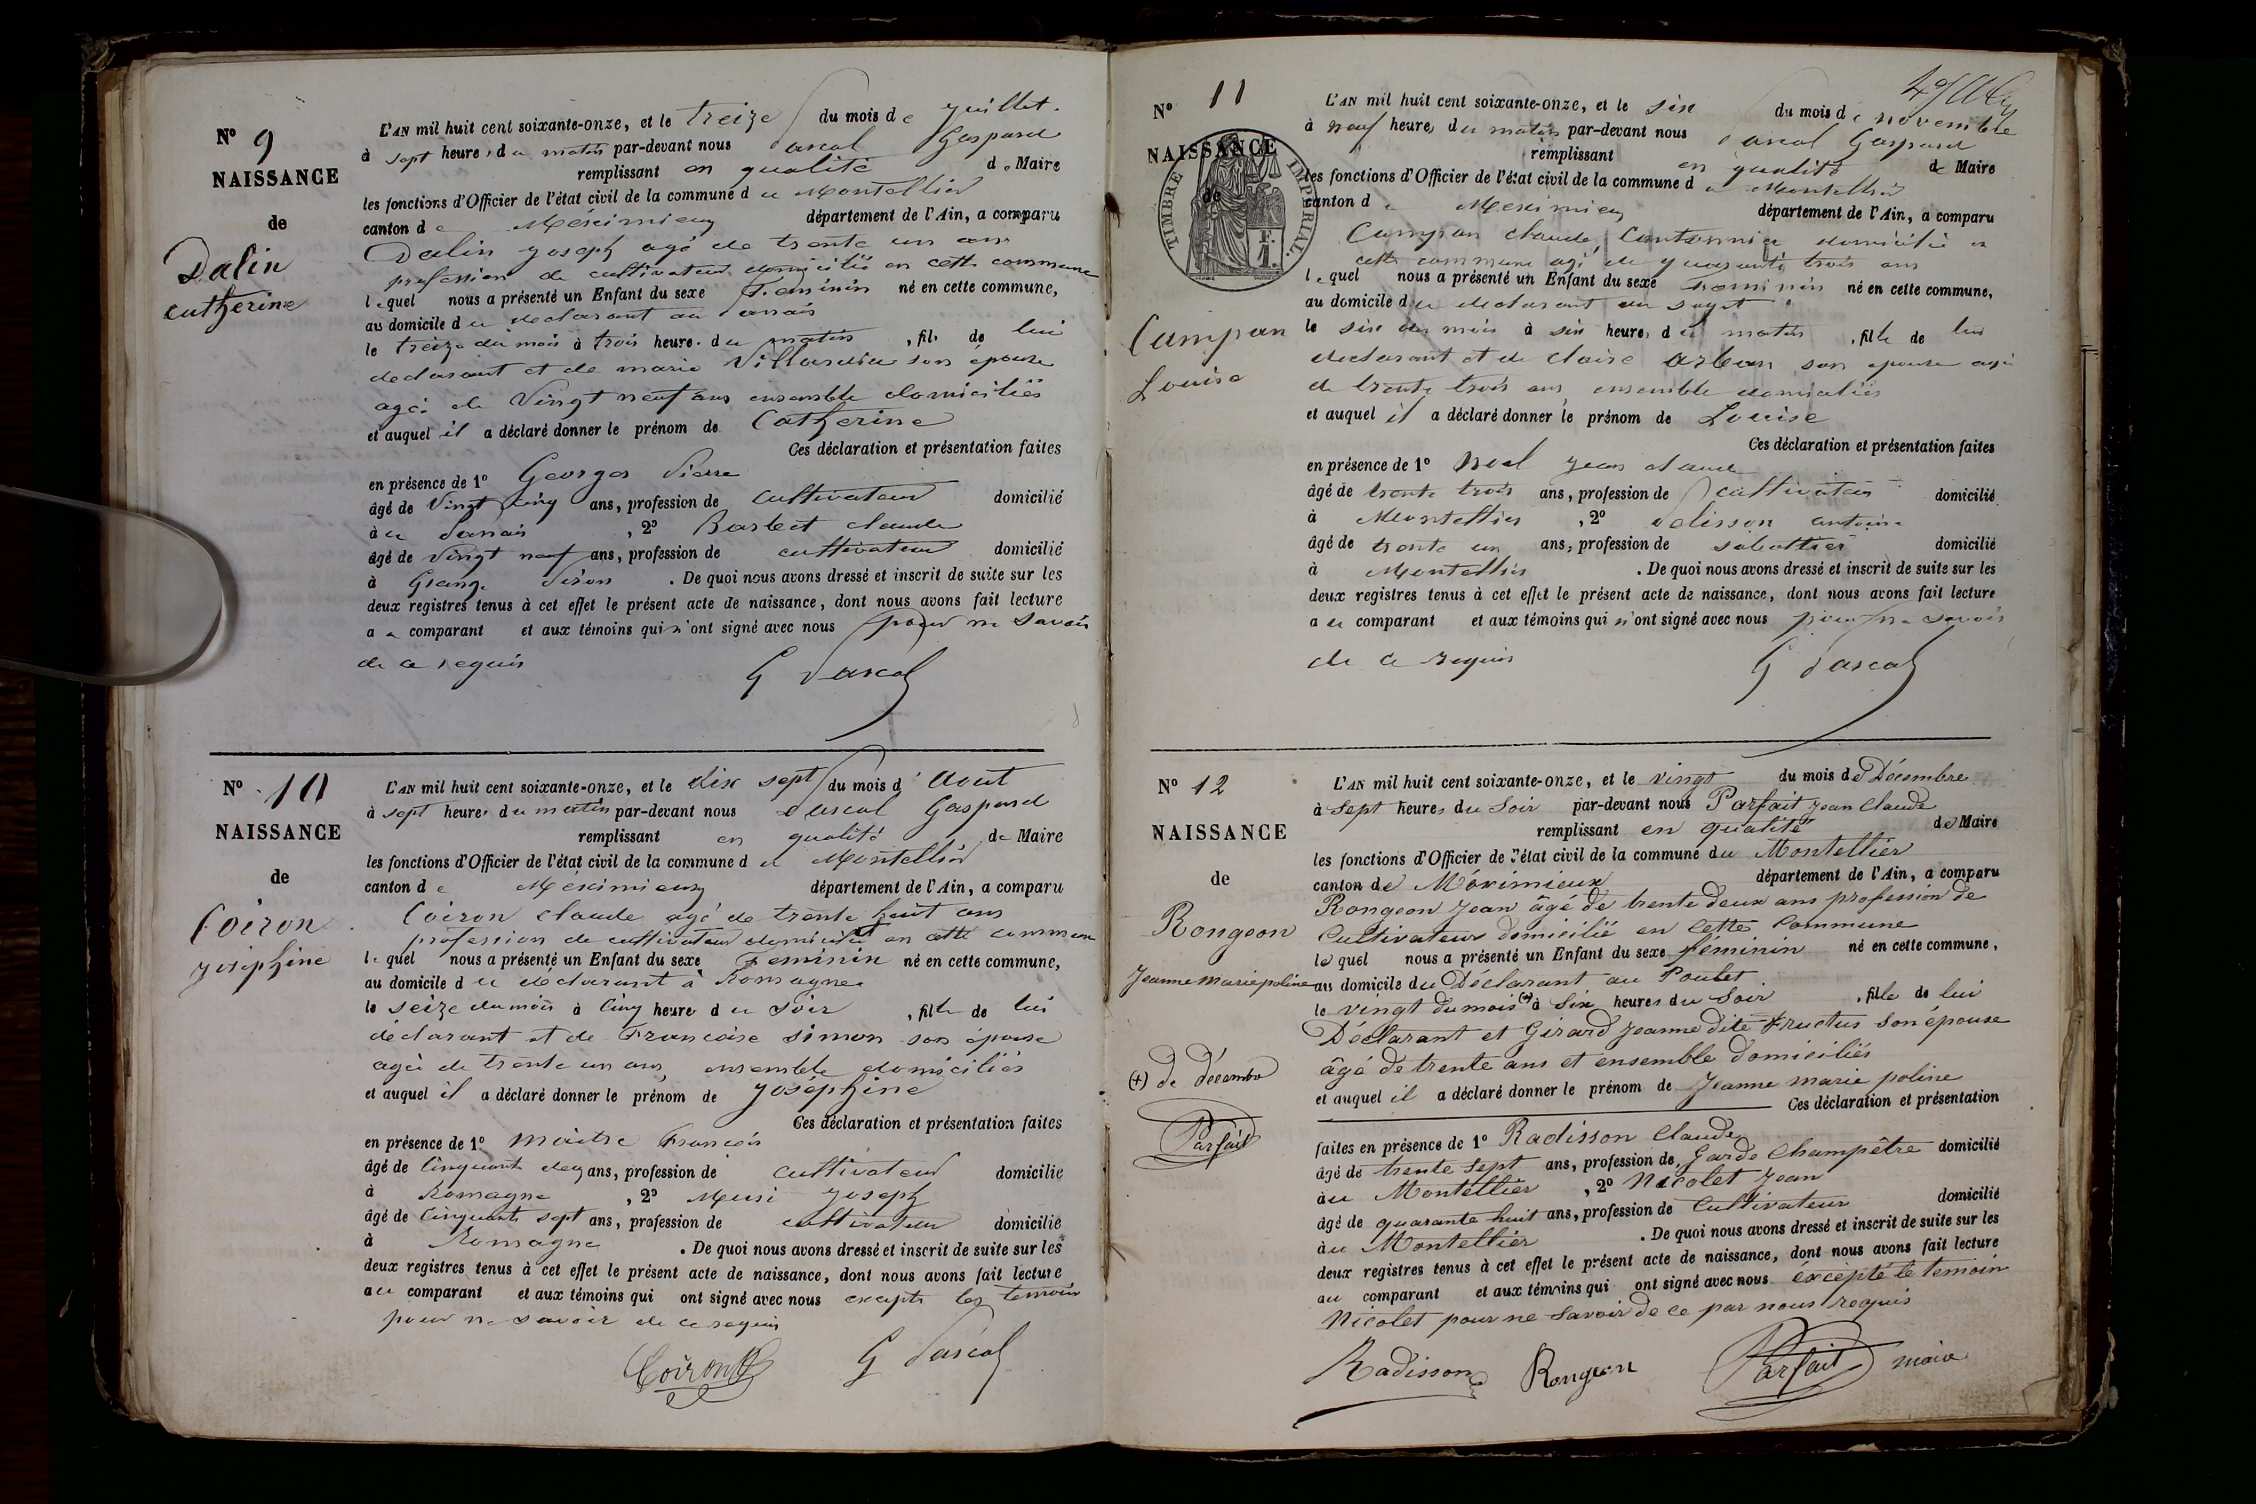 N° 9
NAISSANCE
de
Dalin
Catherine
L'AN mil huit cent soixante-onze, et le treize du mois de Juillet
à sept heures du matin par-devant nous Pascal Gaspard
remplissant en qualité de Maire
les fonctions d'Officier de l'état civil de la commune du Montellier
canton de Méximieux département de l'Ain, a comparu
Dalin Joseph agé de trente un ans
profession de cultivateur domicilié en cette commune
lequel nous a présenté un Enfant du sexe Féminin né en cette commune,
au domicile du déclarant au
le treize du mois à trois heures du matin, fils de lui
déclarant et de marie son épouse
agée de Vingt neuf ans ensemble domiciliés
et auquel il a déclaré donner le prénom de Catherine
Ces déclaration et présentation faites
en présence de 1° Georges Pierre
âgé de Vingt cinq ans, profession de cultivateur domicilié
à au, 2° Barbet claude
âgé de Vingt neuf ans, profession de cultivateur domicilié
à Grange. De quoi nous avons dressé et inscrit de suite sur les
deux registres tenus à cet effet le présent acte de naissance, dont nous avons fait lecture
au comparant et aux témoins qui n'ont signé avec nous pour ne savoir
de ce requis
G Pascal
N° 10
NAISSANCE
de
Coiron
Joséphine
L'AN mil huit cent soixante-onze, et le dix sept du mois d'Aout
à sept heures du matin par-devant nous Pascal Gaspard
remplissant en qualité de Maire
les fonctions d'Officier de l'état civil de la commune du Montellier
canton de Méximieux département de l'Ain, a comparu
Coiron claude agé de trente huit ans
profession de cultivateur domicilié en cette commune
lequel nous a présenté un Enfant du sexe Feminin né en cette commune,
au domicile du déclarant à Romagne
le seize du mois à Cinq heures du Soir, fille de lui
déclarant et de Francoise Simon son épouse
agée de trente un ans, ensemble domiciliés
et auquel il a déclaré donner le prénom de Joséphine
Ces déclaration et présentation faites
en présence de 1° maitre François
âgé de Cinquante deux ans, profession de cultivateur domicilié
à Romagne, 2° Joseph
âgé de Cinquante sept ans, profession de cultivateur domicilié
à Romagne. De quoi nous avons dressé et inscrit de suite sur les
deux registres tenus à cet effet le présent acte de naissance, dont nous avons fait lecture
au comparant et aux témoins qui ont signé avec nous excepté les temoins
pour ne savoir de ce requis
Coiron G Pascal
N° 11
NAISSANCE
de
TIMBRE IMPÉRIAL.
1 F.
Campan
Louise
L'AN mil huit cent soixante-onze, et le six du mois de novembre
à neuf heures du matin par-devant nous Pascal Gaspard
remplissant en qualité de Maire
les fonctions d'Officier de l'état civil de la commune du Montellier
canton de Meximieux département de l'Ain, a comparu
Campan claude, Cantonnier domicilié en
cette commune agé de quarante trois ans
lequel nous a présenté un Enfant du sexe Feminin né en cette commune,
au domicile du déclarant au
le six du mois à six heures du matin, fille de lui
declarant et de claire Arban son epouse agée
de trente trois ans ensemble domiciliés
et auquel il a déclaré donner le prénom de Louise
Ces déclaration et présentation faites
en présence de 1° Noel Jean claude
âgé de trente trois ans, profession de cultivateur domicilié
à Montellier, 2° Pelisson antoine
âgé de trente un ans, profession de sabottier domicilié
à Montellier. De quoi nous avons dressé et inscrit de suite sur les
deux registres tenus à cet effet le présent acte de naissance, dont nous avons fait lecture
au comparant et aux témoins qui n'ont signé avec nous pour ne Savoir
de ce requis
G Pascal
N° 12
NAISSANCE
de
Rongeon
Jeanne Marie poline
(+) de décembre
Parfait
L'AN mil huit cent soixante-onze, et le vingt du mois de Décembre
à Sept heures du Soir par-devant nous Parfait Jean Claude
remplissant en qualité de Maire
les fonctions d'Officier de l'état civil de la commune du Montellier
canton de Méximieux département de l'Ain, a comparu
Rongeon Jean âgé de trente deux ans profession de
Cultivateur domicilié en Cette Commune
lequel nous a présenté un Enfant du sexe féminin né en cette commune,
au domicile du Déclarant au Poulet
le vingt du mois (+) à Six heures du Soir, fille de lui
Déclarant et Girard Jeanne dite Fructus Son épouse
âgé de trente ans et ensemble Domiciliés
et auquel il a déclaré donner le prénom de Jeanne marie poline
Ces déclaration et présentation
faites en présence de 1° Radisson Claude
âgé de trente Sept ans, profession de Garde Champêtre domicilié
au Montellier, 2° Nicolet Jean
âgé de quarante huit ans, profession de Cultivateur domicilié
au Montellier. De quoi nous avons dressé et inscrit de suite sur les
deux registres tenus à cet effet le présent acte de naissance, dont nous avons fait lecture
au comparant et aux témoins qui ont signé avec nous éxcepté le temoin
Nicolet pour ne Savoir de ce par nous requis
Radisson Rongeon Parfait maire